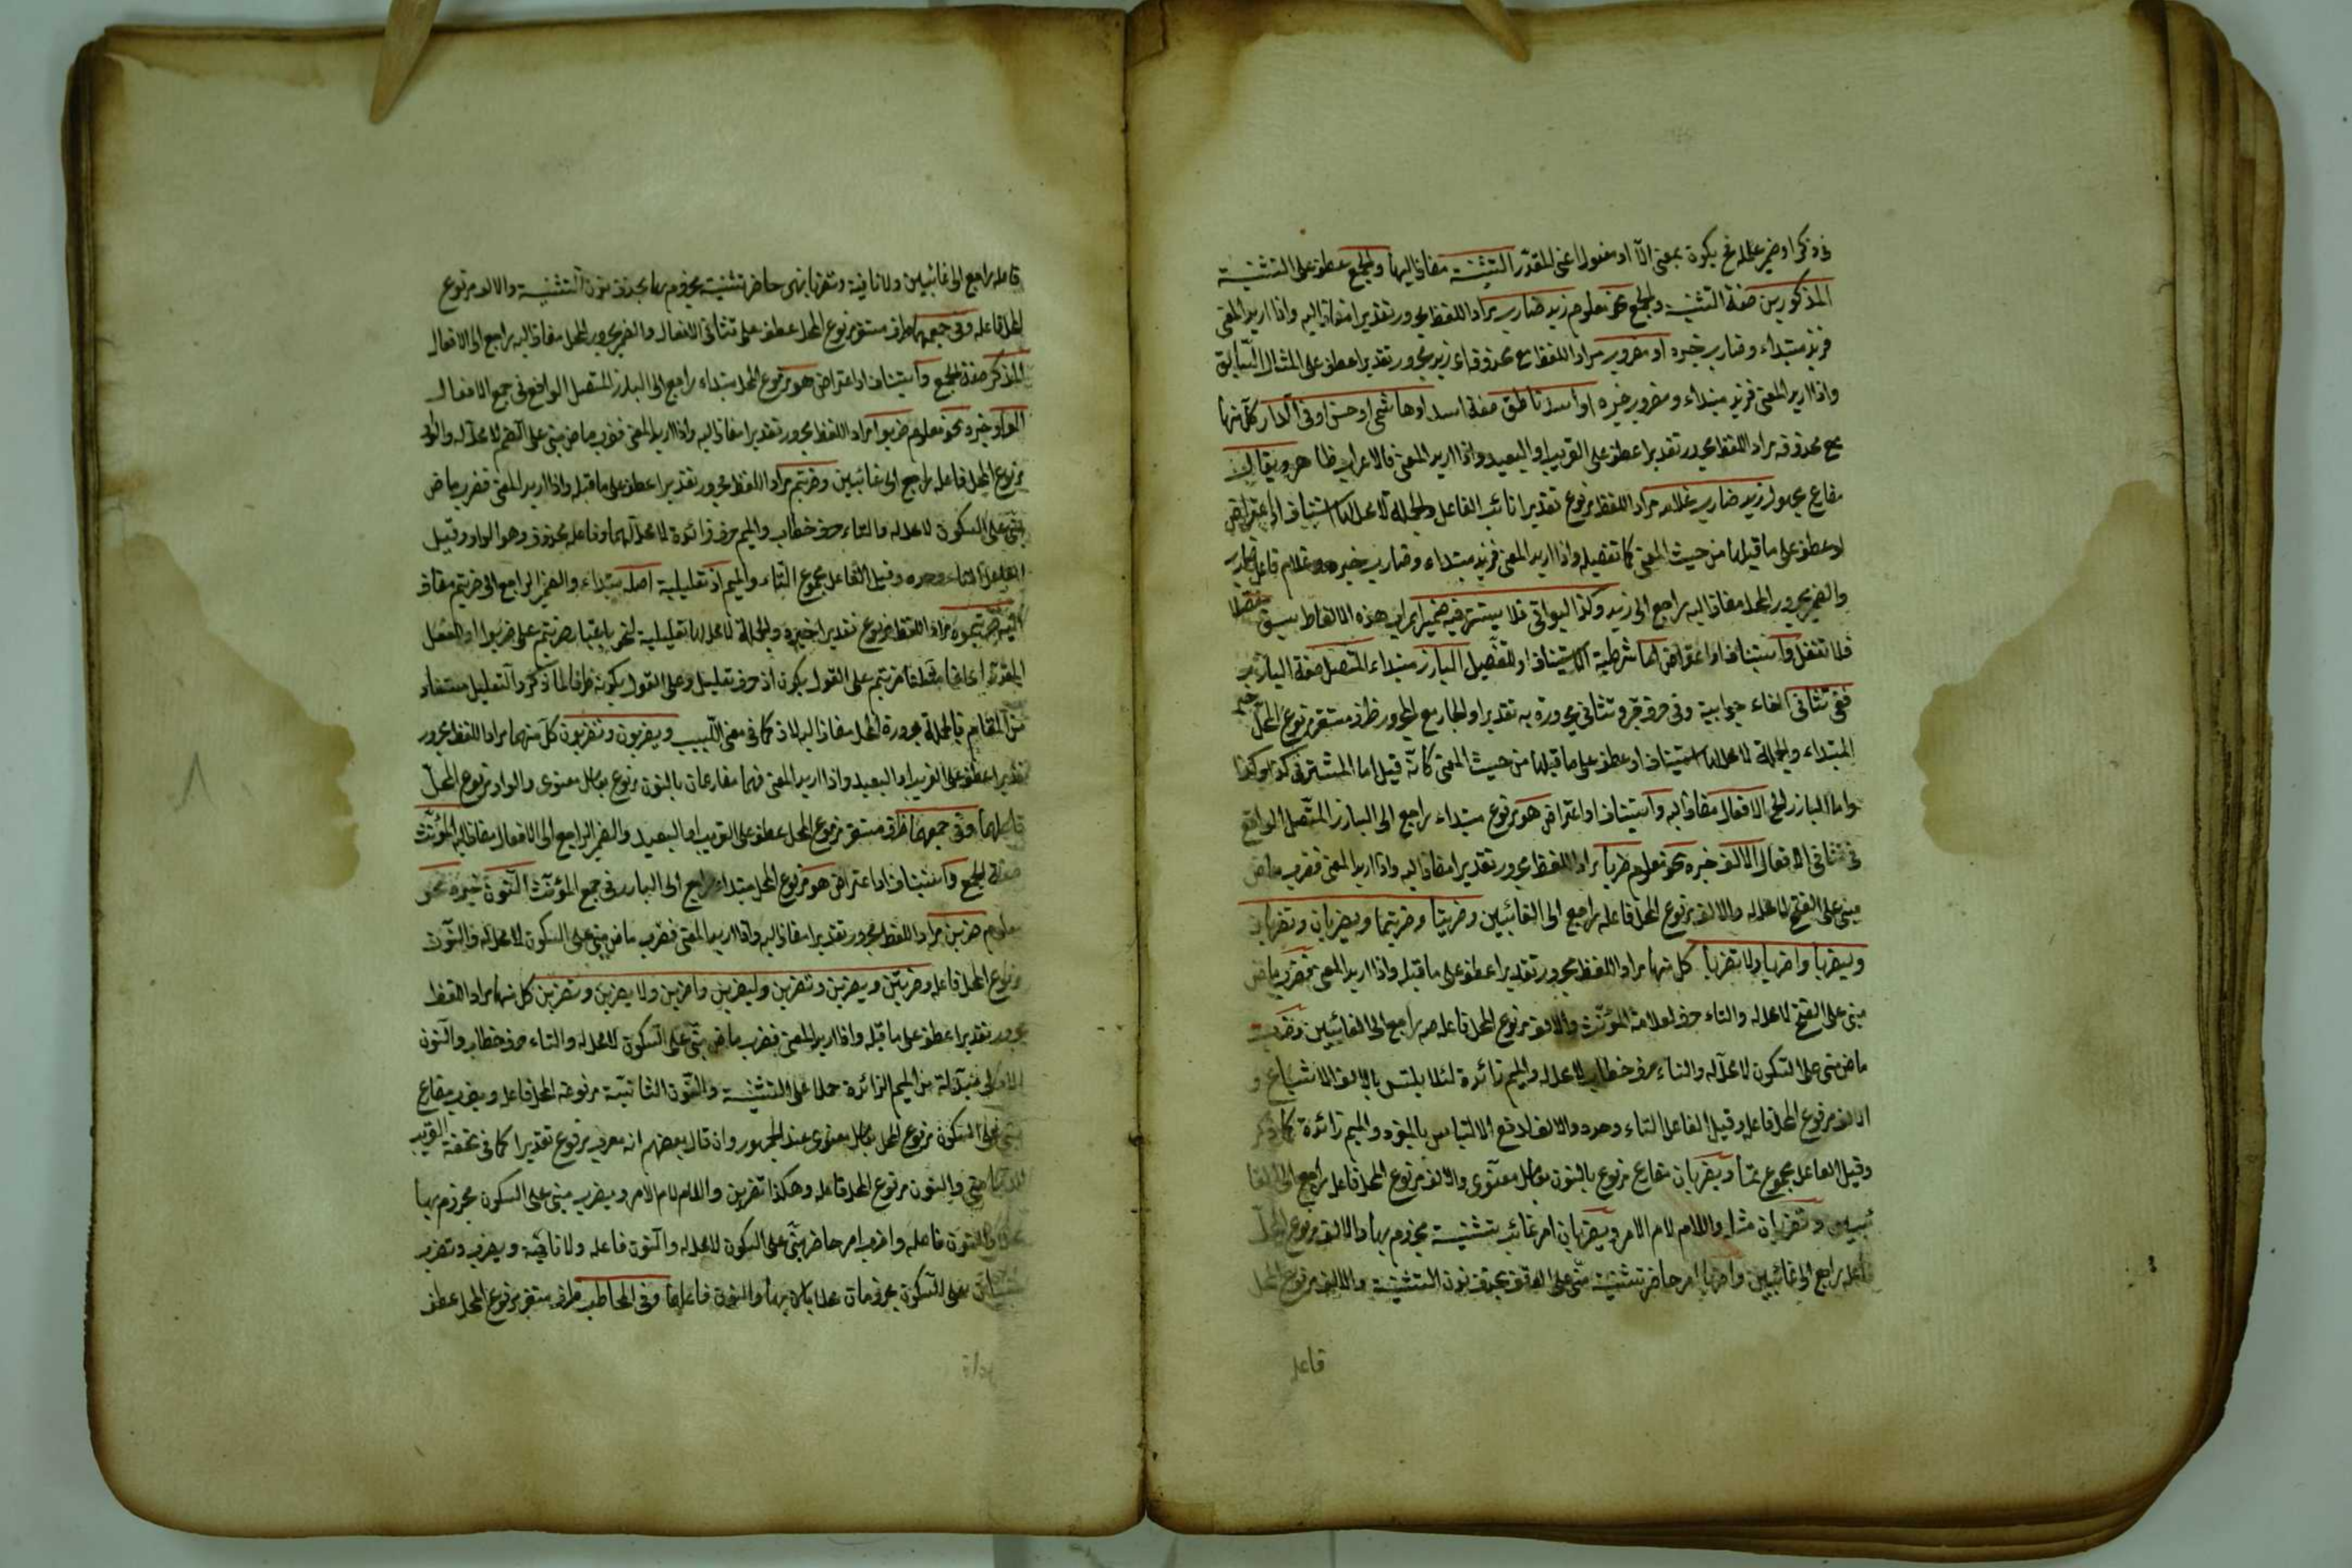 فى ذكر او ضمير علله نح يكون بمعنى الآ او مفعول اعنى المقدّر التثنية مضاف اليها والجمع عطف على التثنية
المذكورين صفة التثنية والجمع نحو معلوم زيد ضارب مراد اللفظ مجرور تقديرا مضاف اليه واذا اريد المعنى
فزيد مبتداء وضارب خبره او مضروب مراد اللفظ مع محذوفاء زيد مجرور تقديرا عطف على المثال السّابق
واذا اريد المعنى فزيد مبتداء ومضروب خبره او اسد ناطق صفة اسد او هاشمى او حسن او فى الدار كلّ منها
مع محذوفه مراد اللفظ مجرور تقديرا عطف على القريب او البعيد واذا اريد المعنى فالاعراب ظاهر ويقال
مضارع مجهول زيد ضارب غلامه مراد اللفظ مرفوع تقديرا نائب الفاعل والجملة لا محل لها استيناف او اعتراض
او عطف على ما قبلها من حيث المعنى كما تفصيله واذا اريد المعنى فزيد مبتداء وضارب خبره وغلام فاعل ضارب
والضمير مجرور المحل مضاف اليه راجع الى زيد وكذا البواقى فلا يستتر فيه ضمير اعراب هذه الالفاظ سبق مفصلا
فلا تغفل واستيناف او اعتراض اما شرطية الاستيناف او للتفصيل البارز مبتداء المتصل صفة البارز
ففى تثانى الفاء جوابية وفى حرف جر وتثانى مجرورة به تقديرا والجار مع المجرور ظرف مستقر مرفوع المحل خبر
المبتداء والجملة لا محل لها استيناف او عطف على ما قبلها من حيث المعنى كانّه قيل اما المستتر فى كذا وكذا
واما البارز الخ الافعال مضاف اليه واستيناف او اعتراض هو مرفوع مبتداء راجع الى البارز المتّصل الواقع
فى تثانى الافعال الالف خبره نحو معلوم ضربا مراد اللفظ مجرور تقديرا مضاف اليه واذا اريد المعنى فضرب ماض
مبنى على الفتح لا محل له والالف مرفوع المحل فاعله راجع الى الغائبين وضربتا وضربتما ويضربان وتضربان
وليضربا واضربا ولا تضربا كل منها مراد اللفظ مجرور تقديرا عطف على ما قبله واذا اريد المعنى فضرب ماض
مبنى على الفتح لا محل له والتاء حرف لعلامة المؤنّث والالف مرفوع المحل فاعله راجع الى الغائبين وضربت
ماض مبنى على السّكون لا محل له والتاء حرف خطاب لا محل له والميم زائدة لئلا يلتبس بالالف الاشباع و
الالف مرفوع المحل فاعله وقيل الفاعل التاء وحده والالف لدفع الالتباس بالمفرد والميم زائدة كما ذكر
وقيل الفاعل مجموع تما ويضربان مضارع مرفوع بالنون بعامل معنوى والالف مرفوع المحل فاعل راجع الى الغا
ئبين وتضربان مثله واللام لام الامر ويضربان امر غائب تثنية مجزوم بها والالف مرفوع المحلّ
فاعله راجع الى غائبين واضربا امر حاضر تثنية مبنى على الوقف بحذف نون التثنية والالف مرفوع المحل
فاعل
فاعله راجع الى غائبين ولا نافية وتضربا نهى حاضر تثنية مجزوم بها بحذف نون التثنية والالف مرفوع
المحل فاعله وفى جمعها ظرف مستقر مرفوع المحل عطف على تثانى الافعال والضمير مجرور المحل مضاف اليه راجع الى الافعال
المذكر صفة الجمع واستيناف او اعتراض هو مرفوع المحل مبتداء راجع الى البارز المتصل الواقع فى جمع الافعال
الواو خبره نحو معلوم ضربوا مراد اللفظ مجرور تقديرا مضاف اليه واذا اريد المعنى فضرب ماض مبنى على الضم لا محلّ له والواو
مرفوع المحل فاعله راجع الى غائبين وضربتم مراد اللفظ مجرور تقديرا عطف على ما قبله واذا اريد المعنى فضرب ماض
مبنى على السكون لا محل له والتاء حرف خطاب والميم حرف زائدة لا محل لهما وفاعله محذوف وهو الواو وقيل
الفاعل التاء وحده وقيل الفاعل مجموع التاء والميم اذ تعليلية اصله مبتداء والضمير الراجع الى ضربتم مضاف
اليه ضربتموه مراد اللفظ مرفوع تقديرا خبره والجملة لا محل لها تعليلية لنحو باعتبار ضربتم على ضربوا او للفعل
المقدّر اى على القول بكون اذ حرف تعليل وعلى القول بكونه ظرفا لما ذكر والتعليل مستفاد
من المقام فالجملة مجرورة المحل مضاف اليها لاذ كما فى مغنى اللّبيب ويضربون وتضربون كلّ منهما مراد اللفظ مجرور
تقديرا عطف على القريب او البعيد واذا اريد المعنى فهما مضارعان بالنون مرفوع بعامل معنوى والواو مرفوع المحلّ
فاعلهما وفى جمعها ظرف مستقر مرفوع المحل عطف على القريب او البعيد والضمير الراجع الى الافعال مضاف اليه المؤنّث
صفة الجمع واستيناف او اعتراض هو مرفوع المحل مبتداء راجع الى البارز فى جمع المؤنّث النّون خبره نحو
معلوم ضربن مراد اللفظ مجرور تقديرا مضاف اليه واذا اريد المعنى فضرب ماض مبنى على السكون لا محل له والنّون
مرفوع المحل فاعله وضربتنّ ويضربن وتضربن وليضربن واضربن ولا يضربن وتضربن كل منها مراد اللفظ
مجرور تقديرا عطف على ما قبله واذا اريد المعنى فضرب ماض مبنى على السّكون لا محل له والتاء حرف خطاب والنّون
الاولى مبدّلة من الميم الزائدة حملا على التثنية والنّون الثانيّة مرفوعة المحل فاعله ويضرب مضارع
مبنى على السّكون مرفوع المحل بعامل معنوى عند الجمهور وان قال بعضهم انه معرب مرفوع تقديرا كما فى تحفة الغريب
والنون مرفوع المحل فاعله وهكذا تضربن واللام لام الامر ويضرب مبنى على السكون مجزوم بها
والنون فاعله واضرب امر حاضر مبنى على السكون لا محل له والنّون فاعله ولا نافية ويضرب وتضرب
مبنيان على السّكون مجزومان محلا بلا بها والنون فاعلهما وفى المخاطب ظرف مستقر مرفوع المحل عطف